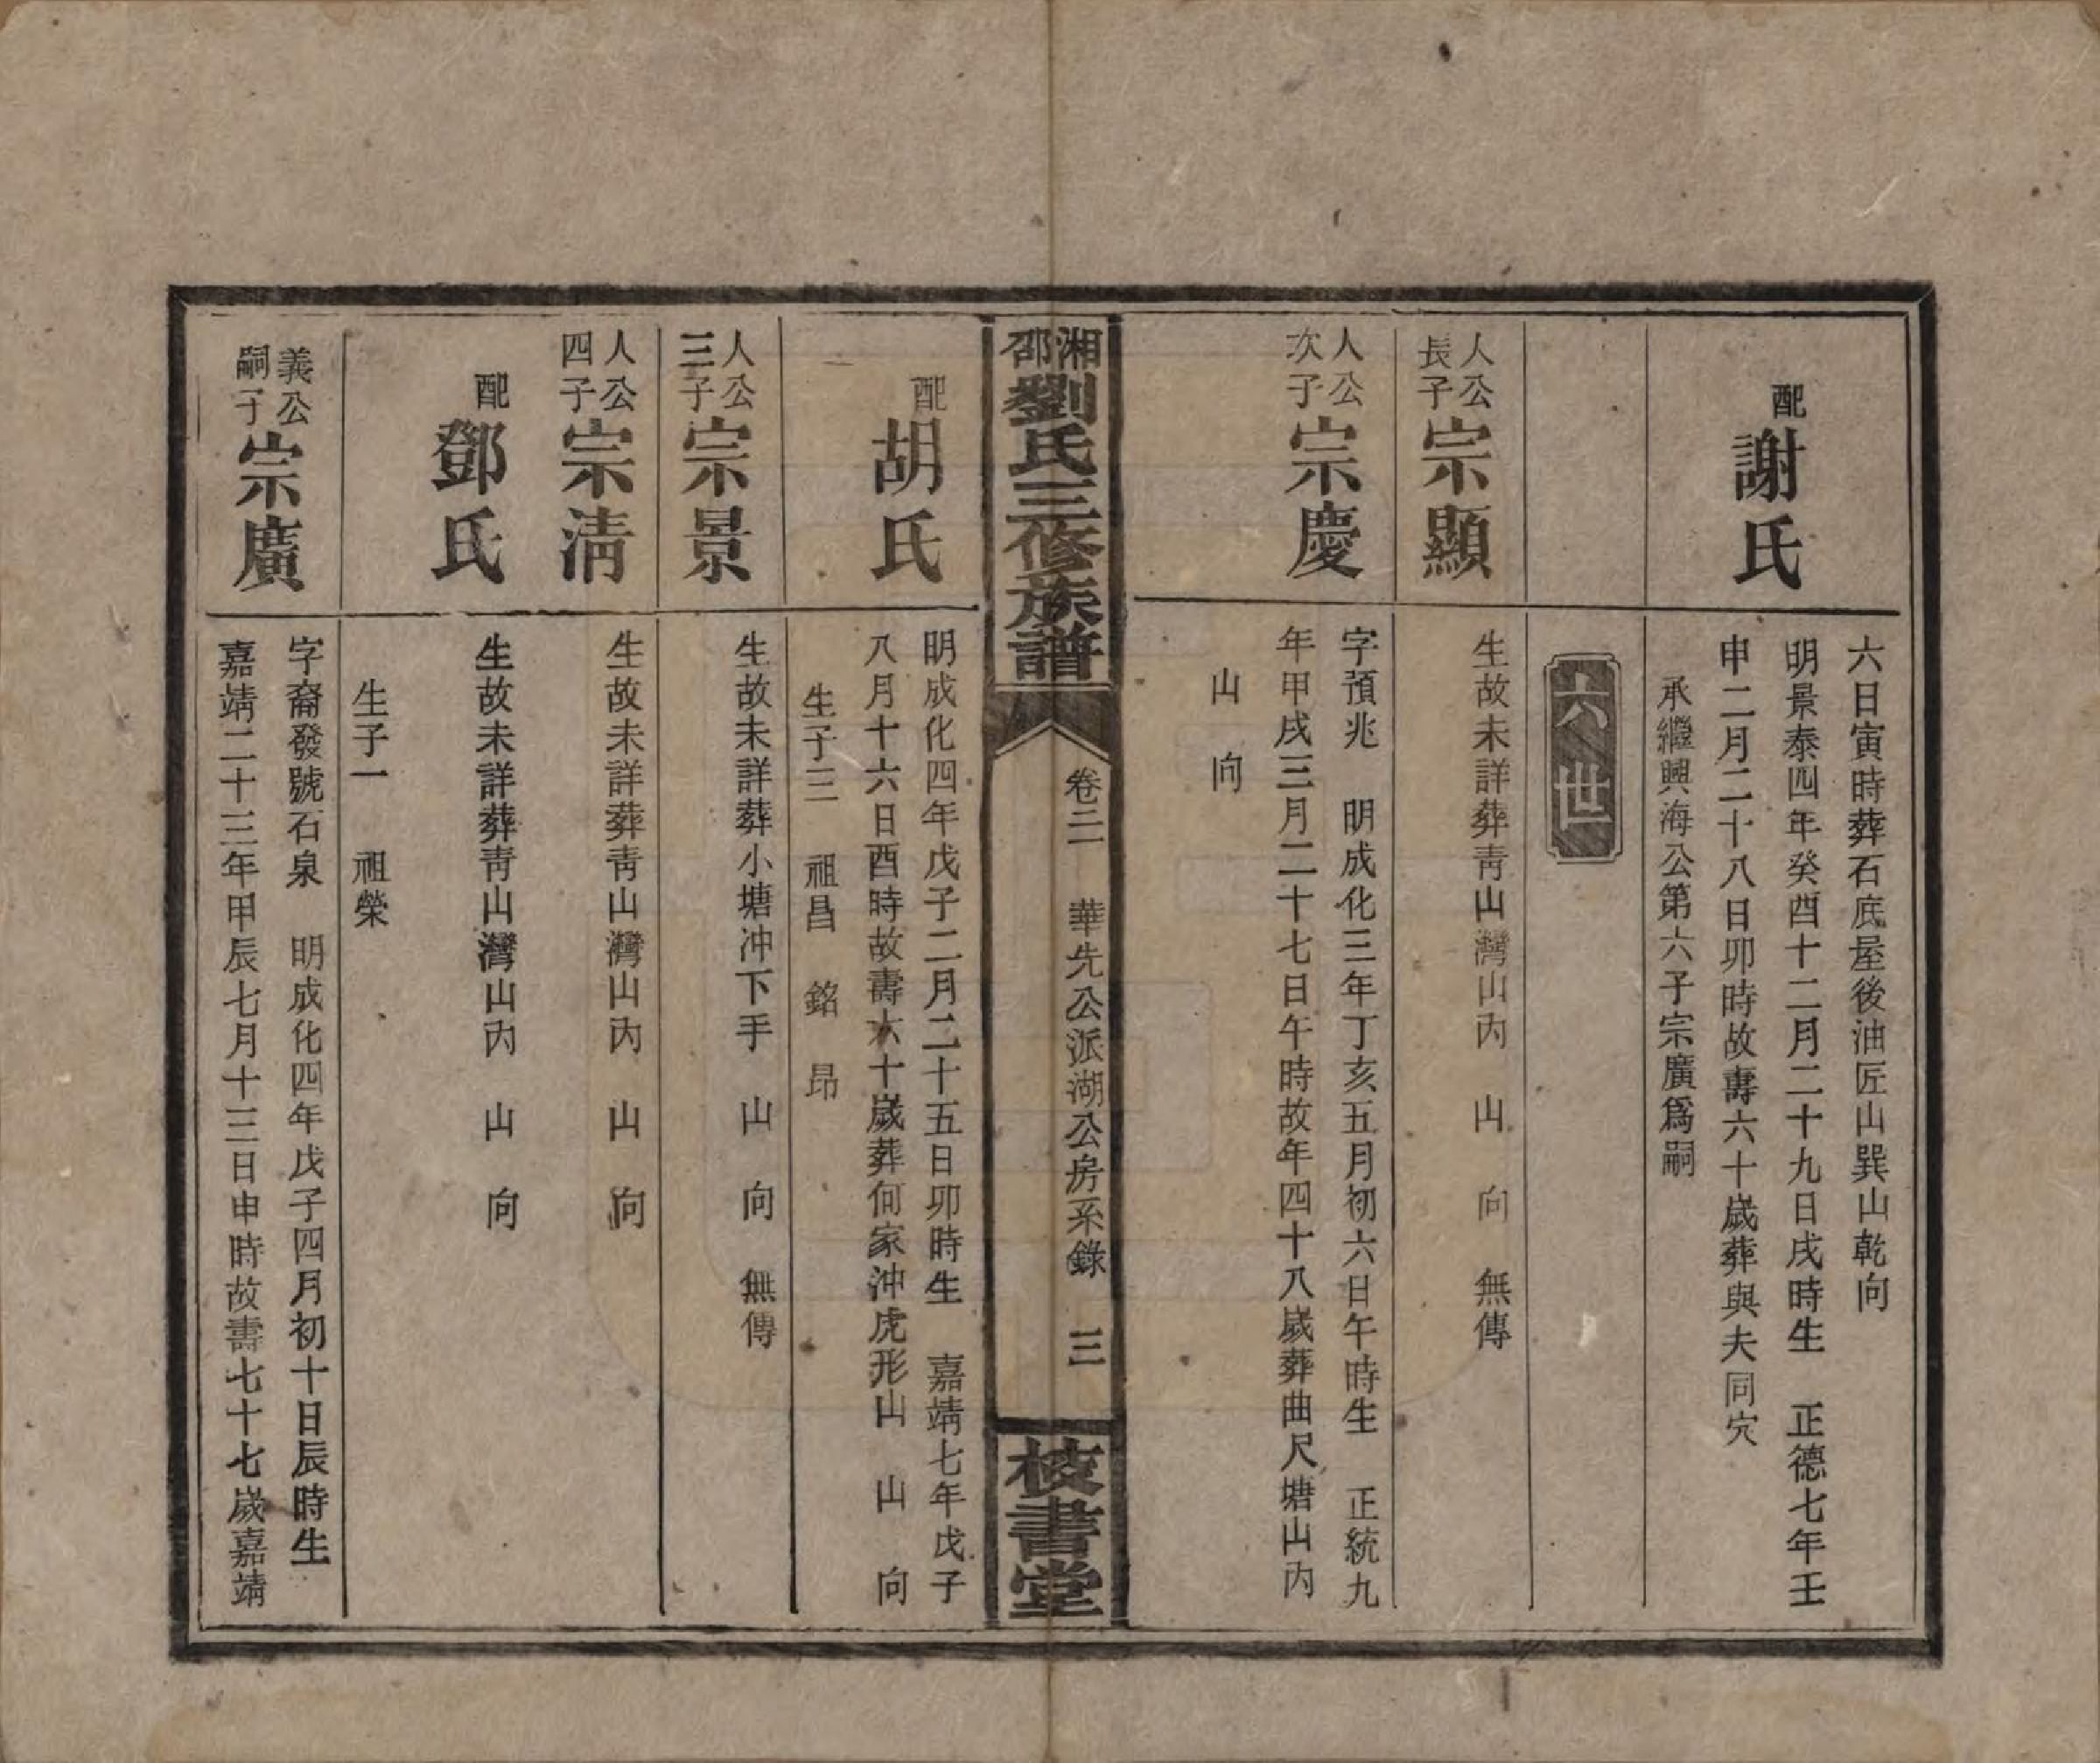 六日寅時葬石底屋後油匠山巽山乾向
配
謝氏
明景泰四年癸酉十二月二十九日戌時生　正德七年壬
申二月二十八日卯時故壽六十歲葬與夫同穴
承繼興海公第六子宗廣爲嗣
六世
人公
長子
宗顯
生故未詳葬靑山灣山內　山　向　無傳
人公
次子
宗慶
字預兆　明成化三年丁亥五月初六日午時生　正統九
年甲戌三月二十七日午時故年四十八歲葬曲尺塘山內
山　向
湘邵劉氏三修族譜
卷二　華先公派湖公房系錄　三
校書堂
配
胡氏
明成化四年戊子二月二十五日卯時生　嘉靖七年戊子
八月十六日酉時故壽六十歲葬何家沖虎形山　山　向
生子三　祖昌　銘　昂
人公
三子
宗景
生故未詳葬小塘沖下手　山　向　無傳
人公
四子
宗淸
生故未詳葬靑山灣山內　山　向
配
鄧氏
生故未詳葬靑山灣山內　山　向
生子一　祖榮
義公
嗣子
宗廣
字裔發號石泉　明成化四年戊子四月初十日辰時生
嘉靖二十三年甲辰七月十三日申時故壽七十七歲嘉靖